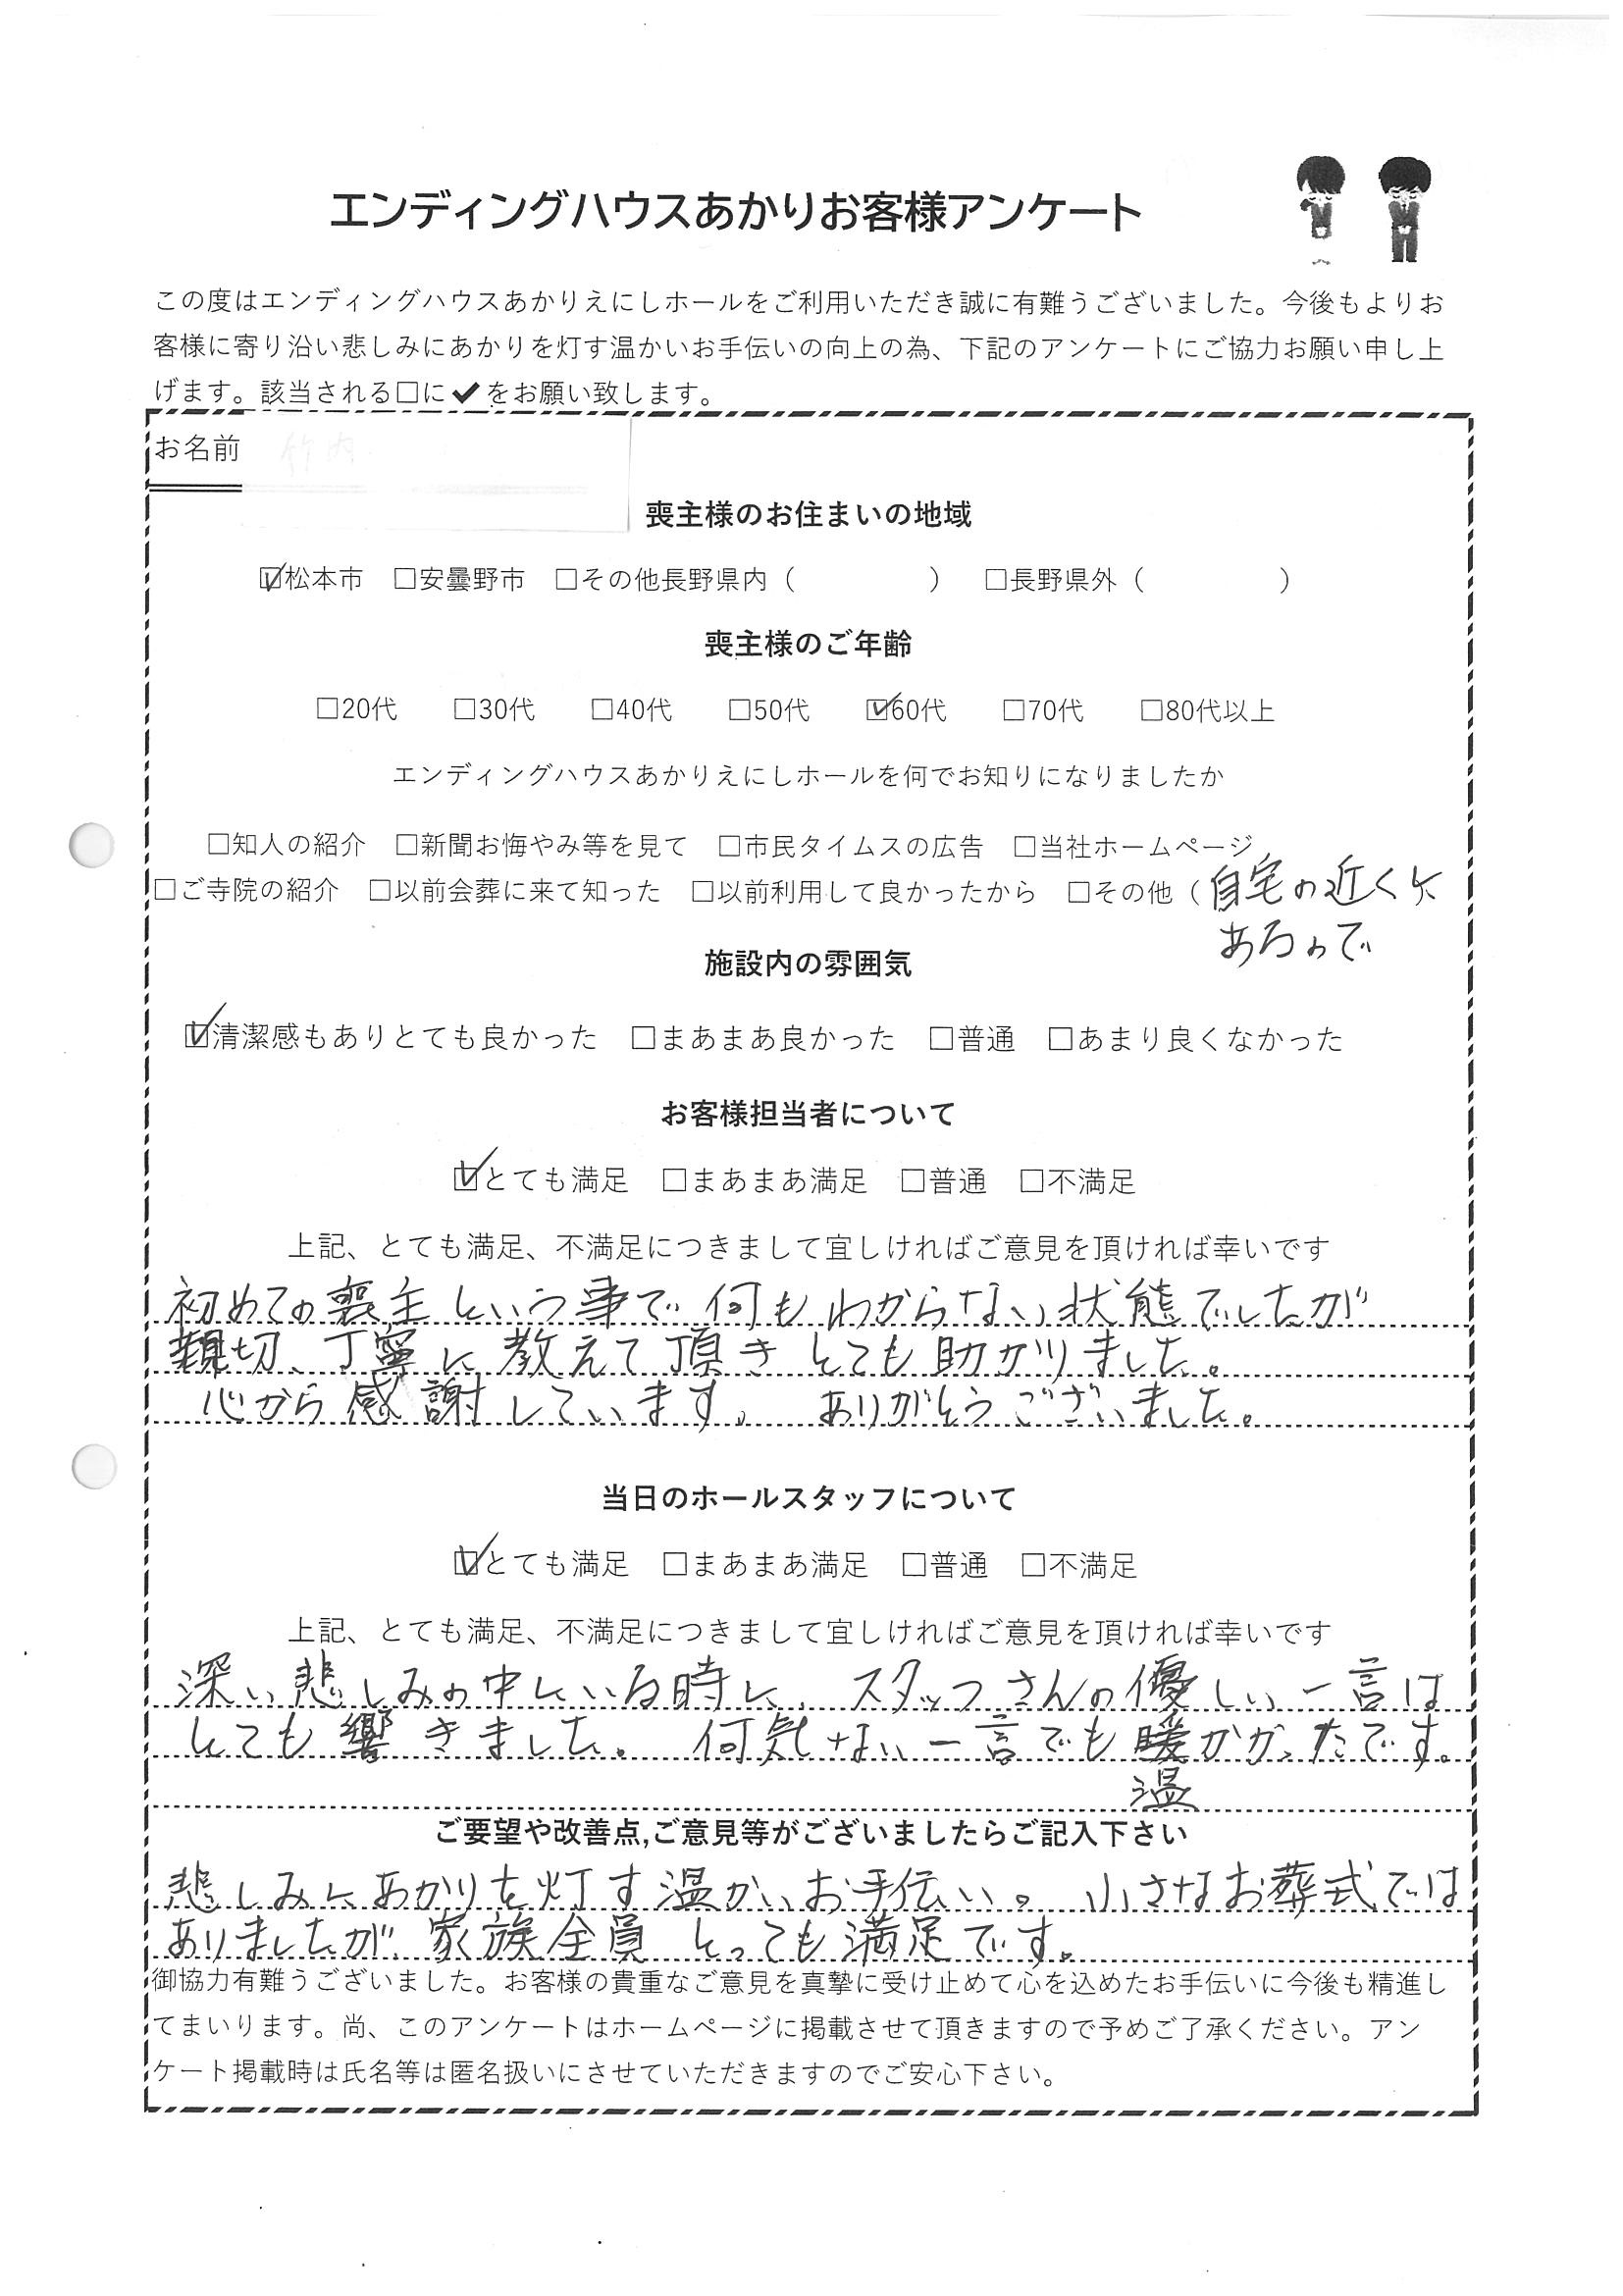 エンディングハウスあかりお客様アンケート
この度はエンディングハウスあかりえにしホールをご利用いただき誠に有難うございました。今後もよりお
客様に寄り沿い悲しみにあかりを灯す温かいお手伝いの向上の為、下記のアンケートにご協力お願い申し上
げます。該当される□に✔をお願い致します。
お名前
喪主様のお住まいの地域
☑松本市 □安曇野市 □その他長野県内（ ） □長野県外（ ）
喪主様のご年齢
□20代 □30代 □40代 □50代 ☑60代 □70代 □80代以上
エンディングハウスあかりえにしホールを何でお知りになりましたか
□知人の紹介 □新聞お悔やみ等を見て □市民タイムスの広告 □当社ホームページ
□ご寺院の紹介 □以前会葬に来て知った □以前利用して良かったから □その他（自宅の近くに
あるので
施設内の雰囲気
☑清潔感もありとても良かった □まあまあ良かった □普通 □あまり良くなかった
お客様担当者について
☑とても満足 □まあまあ満足 □普通 □不満足
上記、とても満足、不満足につきまして宜しければご意見を頂ければ幸いです
初めての喪主という事で何もわからない状態でしたが
親切、丁寧に教えて頂きとても助かりました。
心から感謝しています。 ありがとうございました。
当日のホールスタッフについて
☑とても満足 □まあまあ満足 □普通 □不満足
上記、とても満足、不満足につきまして宜しければご意見を頂ければ幸いです
深い悲しみの中にいる時に、スタッフさんの優しい一言は
とても響きました。 何気ない一言でも暖かかったです。
温
ご要望や改善点,ご意見等がございましたらご記入下さい
悲しみにあかりを灯す温かいお手伝い。 小さなお葬式では
ありましたが、家族全員 とっても満足です。
御協力有難うございました。お客様の貴重なご意見を真摯に受け止めて心を込めたお手伝いに今後も精進し
てまいります。尚、このアンケートはホームページに掲載させて頂きますので予めご了承ください。アン
ケート掲載時は氏名等は匿名扱いにさせていただきますのでご安心下さい。